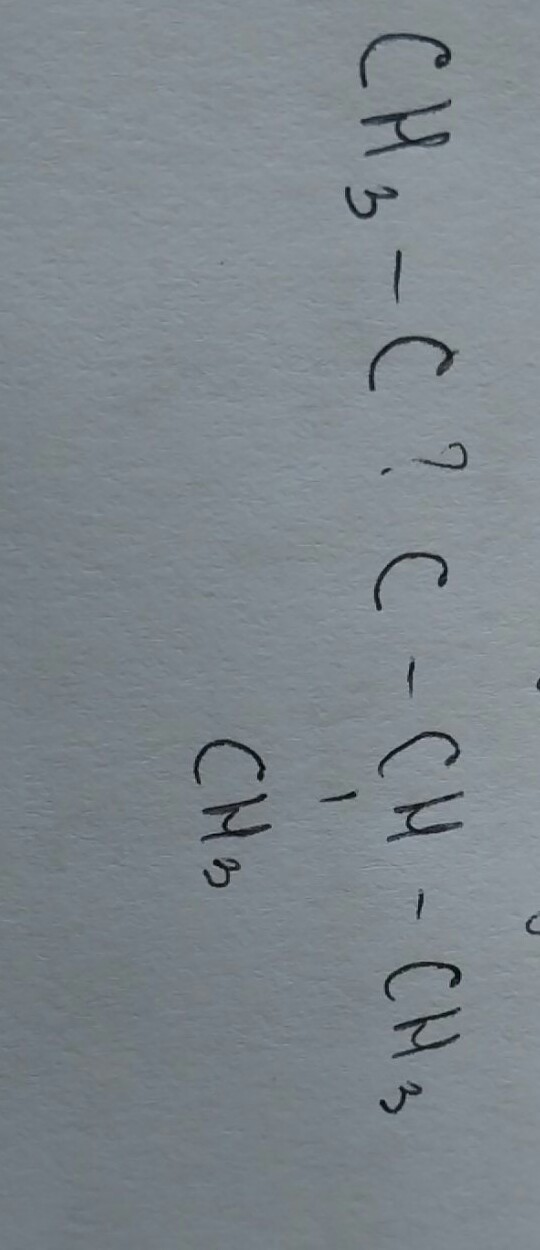 CH₃ - C ? C - CH - CH₃
CH₃